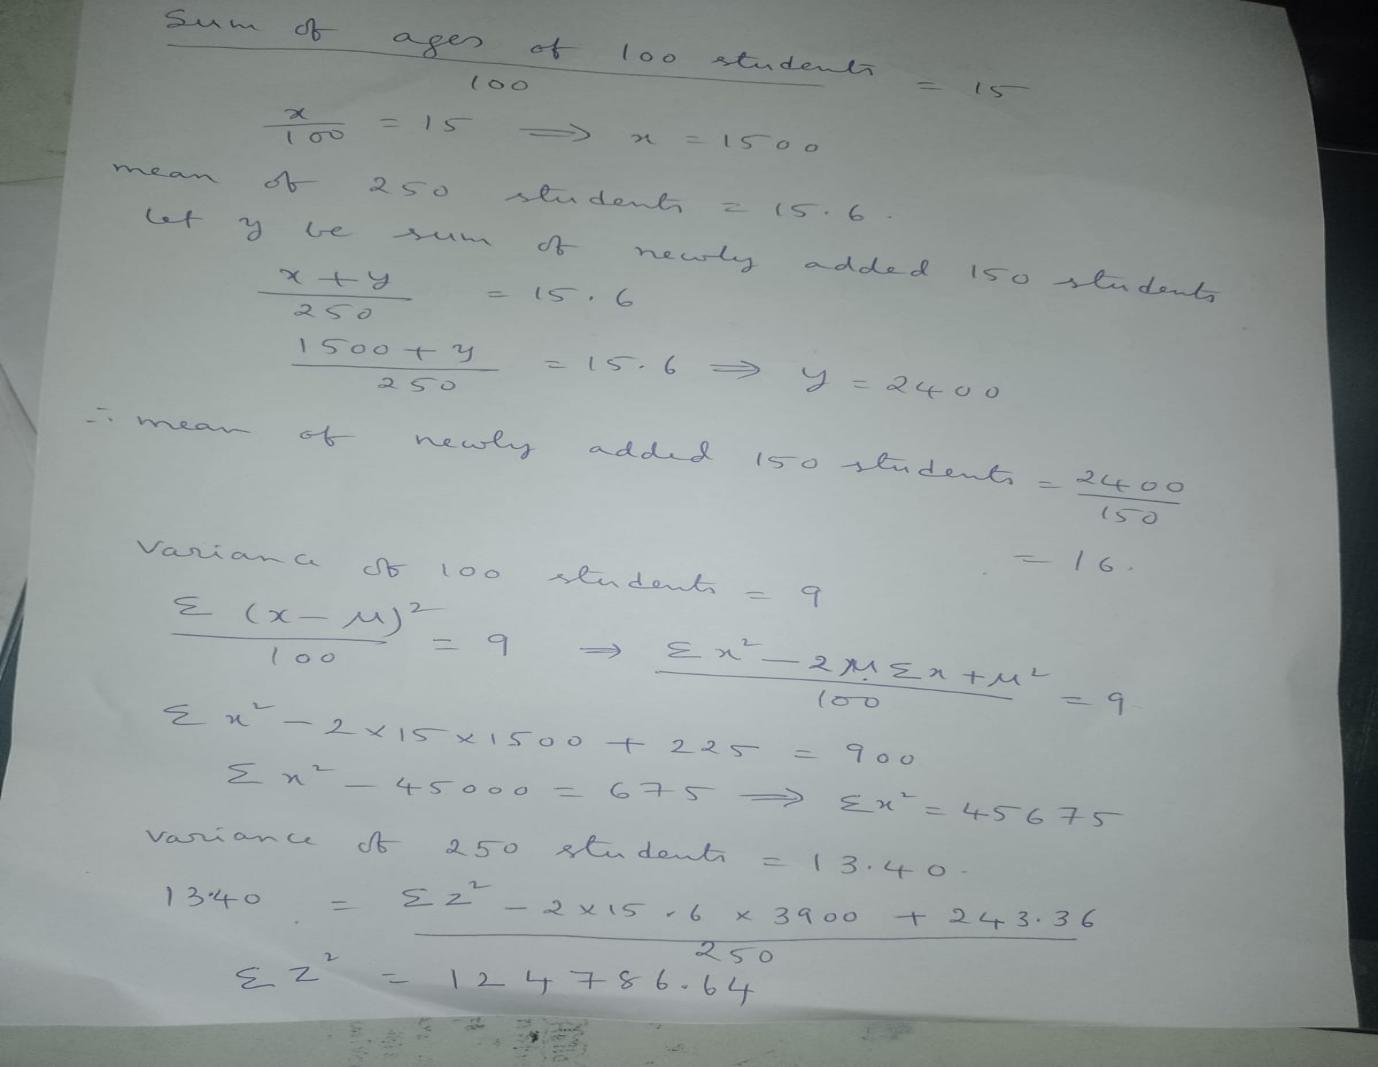 Sum of ages of 100 students / 100 = 15
x/100 = 15 ⟹ x = 1500
mean of 250 students = 15.6.
Let y be sum of newly added 150 students
x + y / 250 = 15.6
1500 + y / 250 = 15.6 ⟹ y = 2400
∴ mean of newly added 150 students = 2400/150
= 16.
Variance of 100 students = 9
Σ (x - μ)² / 100 = 9 ⟹ Σx² - 2μΣx + μ² / 100 = 9
Σx² - 2 × 15 × 1500 + 225 = 900
Σx² - 45000 = 675 ⟹ Σx² = 45675
variance of 250 students = 13.40.
13.40 = Σz² - 2 × 15.6 × 3900 + 243.36 / 250
Σz² = 124786.64